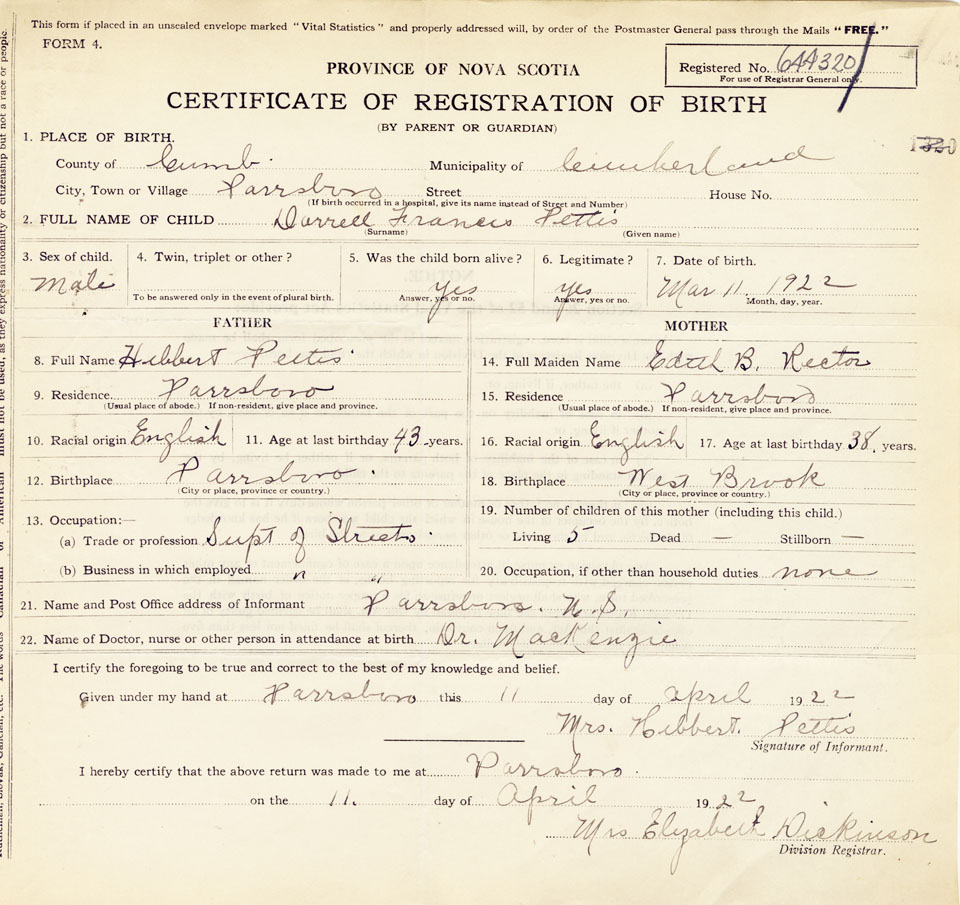 This form if placed in an unsealed envelope marked "Vital Statistics" and properly addressed will, by order of the Postmaster General pass through the Mails "FREE."
FORM 4.
Registered No. 644320
For use of Registrar General only.
PROVINCE OF NOVA SCOTIA
CERTIFICATE OF REGISTRATION OF BIRTH
(BY PARENT OR GUARDIAN)
1. PLACE OF BIRTH.
County of Cumb. Municipality of Cumberland
City, Town or Village Parrsboro Street House No.
(If birth occurred in a hospital, give its name instead of Street and Number)
2. FULL NAME OF CHILD Darrell Francis Pettis
(Surname) (Given name)
3. Sex of child. Male
4. Twin, triplet or other?
To be answered only in the event of plural birth.
5. Was the child born alive? yes
Answer, yes or no.
6. Legitimate? yes
Answer, yes or no.
7. Date of birth. Mar 11, 1922
Month, day, year.
FATHER
8. Full Name Hibbert Pettis
9. Residence Parrsboro
(Usual place of abode.) If non-resident, give place and province.
10. Racial origin English 11. Age at last birthday 43 years.
12. Birthplace Parrsboro.
(City or place, province or country.)
13. Occupation:—
(a) Trade or profession Supt of Streets.
(b) Business in which employed " "
MOTHER
14. Full Maiden Name Edith B. Rector
15. Residence Parrsboro
(Usual place of abode.) If non-resident, give place and province.
16. Racial origin English 17. Age at last birthday 38. years.
18. Birthplace West Brook
(City or place, province or country.)
19. Number of children of this mother (including this child.)
Living 5 Dead — Stillborn —
20. Occupation, if other than household duties none
21. Name and Post Office address of Informant Parrsboro. N.S.
22. Name of Doctor, nurse or other person in attendance at birth. Dr. MacKenzie
I certify the foregoing to be true and correct to the best of my knowledge and belief.
Given under my hand at Parrsboro this 11 day of April 1922
Mrs. Hibbert. Pettis
Signature of Informant.
I hereby certify that the above return was made to me at Parrsboro.
on the 11. day of April 1922
Mrs Elizabeth Dickinson
Division Registrar.
must not be used, as they express nationality or citizenship but not a race or people.